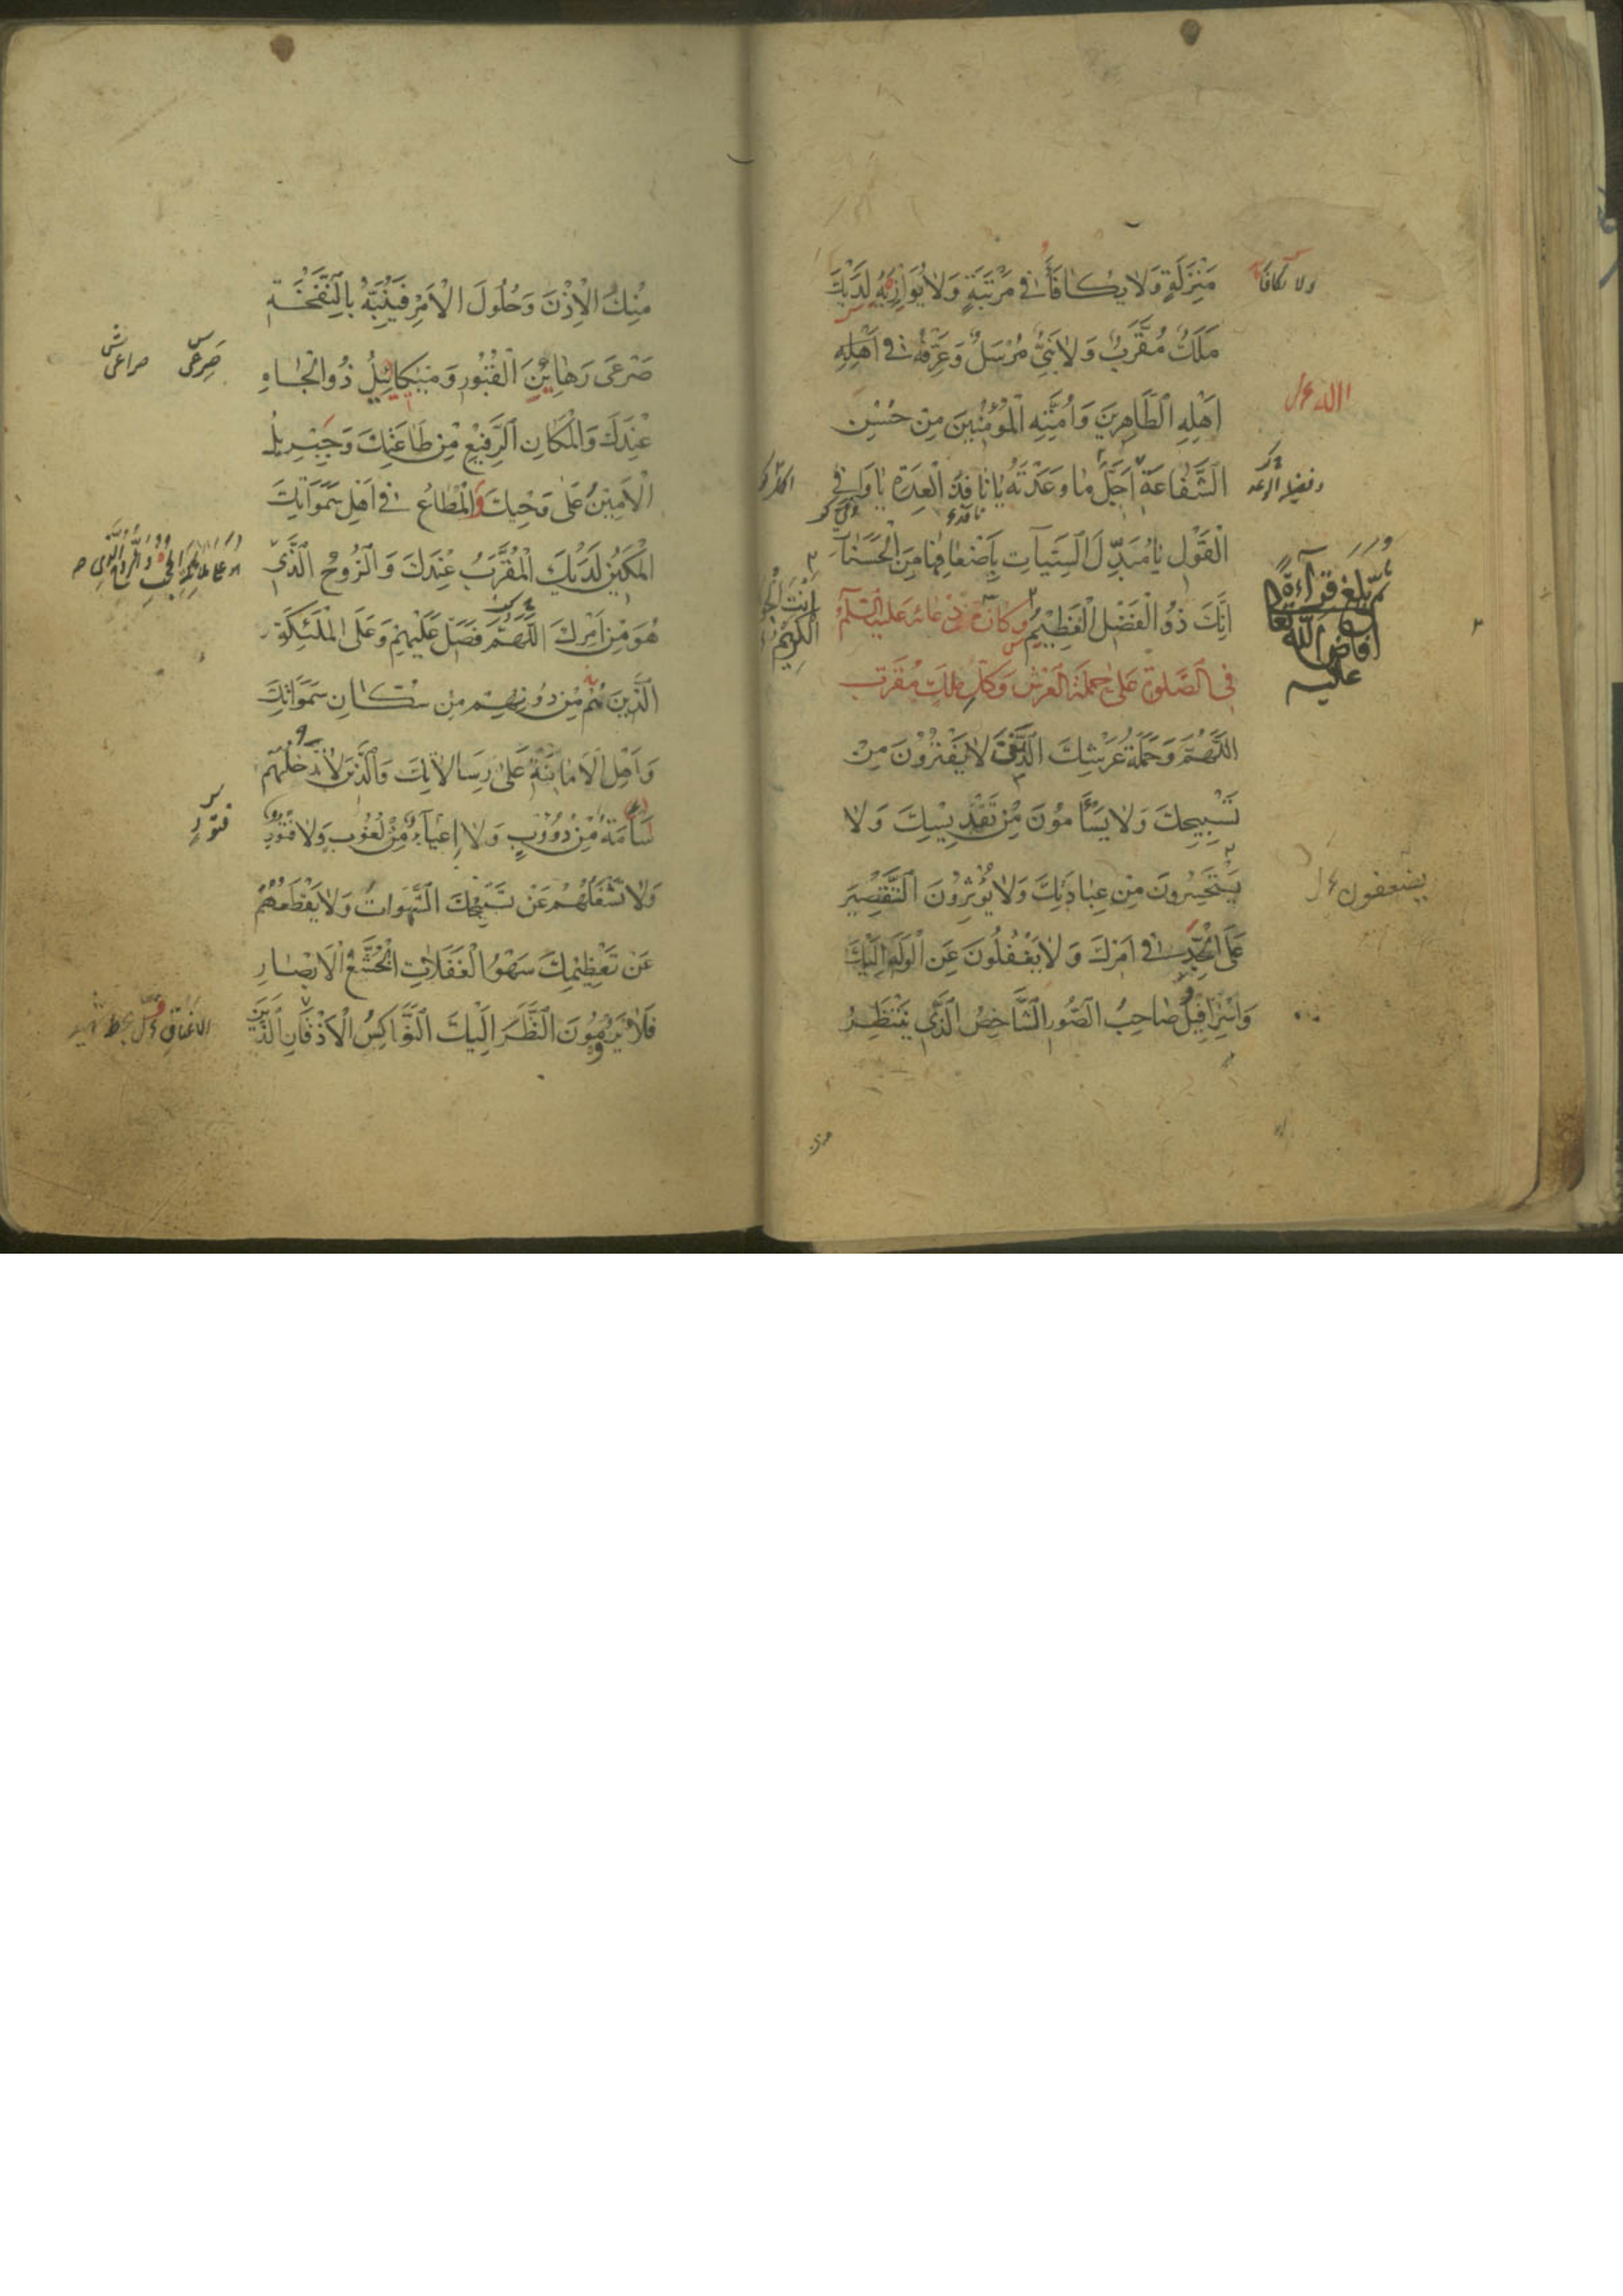 مَنْزِلَةٍ وَلَا يُكَافَأَ فِي مَرْتَبَةٍ وَلَا يُوَازِيَهُ لَدَيْكَ
مَلَكٌ مُقَرَّبٌ وَلَا نَبِيٌّ مُرْسَلٌ وَعَرِّفْهُ فِي اَهْلِهِ
اَهْلِهِ الطَّاهِرِينَ وَاُمَّتِهِ الْمُؤْمِنِينَ مِنْ حُسْنِ
الشَّفَاعَةِ اَجَلَّ مَا وَعَدْتَهُ يَا نَافِذَ الْعِدَةِ يَا وَافِيَ
الْقَوْلِ يَا مُبَدِّلَ السَّيِّئَاتِ بِاَضْعَافِهَا مِنَ الْحَسَنَاتِ
اِنَّكَ ذُو الْفَضْلِ الْعَظِيمِ وكان من دعائه عليه السّلم
في الصَّلوة عَلى حَملَة العَرش وَكل مَلَك مُقَرَّب
اللّٰهُمَّ وَحَمَلَةُ عَرْشِكَ الَّذِينَ لَا يَفْتُرُونَ مِنْ
تَسْبِيحِكَ وَلَا يَسْأَمُونَ مِنْ تَقْدِيسِكَ وَلَا
يَسْتَحْسِرُونَ مِنْ عِبَادَتِكَ وَلَا يُؤْثِرُونَ التَّقْصِيرَ
عَلَى الْجِدِّ فِي اَمْرِكَ وَلَا يَغْفُلُونَ عَنِ الْوَلَهِ اِلَيْكَ
وَاِسْرَافِيلُ صَاحِبُ الصُّورِ الشَّاخِصُ الَّذِي يَنْتَظِرُ
ولا يكافا
بلغ قرآءة
افاض الله
عليه
يضعفون
اَنْتَ
الكريم
مِنْكَ الْاِذْنَ وَحُلُولَ الْاَمْرِ فَيُنَبِّهُ بِالنَّفْخَةِ
صَرْعَى رَهَائِنِ الْقُبُورِ وَمِيكَائِيلُ ذُو الْجَاهِ
عِنْدَكَ وَالْمَكَانِ الرَّفِيعِ مِنْ طَاعَتِكَ وَجِبْرِيلُ
الْاَمِينُ عَلَى وَحْيِكَ وَالْمُطَاعُ فِي اَهْلِ سَمَوَاتِكَ
الْمَكِينُ لَدَيْكَ الْمُقَرَّبُ عِنْدَكَ وَالرُّوحُ الَّذِي
هُوَ مِنْ اَمْرِكَ اللّٰهُمَّ فَصَلِّ عَلَيْهِمْ وَعَلَى الْمَلٰئِكَةِ
الَّذِينَ هُمْ مِنْ دُونِهِمْ مِنْ سُكَّانِ سَمَوَاتِكَ
وَاَهْلِ الْاَمَانَةِ عَلَى رِسَالَاتِكَ وَالَّذِينَ لَا تَدْخُلُهُمْ
سَأْمَةٌ مِنْ دُؤُوبٍ وَلَا اِعْيَاءٌ مِنْ لُغُوبٍ وَلَا فُتُورٌ
وَلَا تَشْغَلُهُمْ عَنْ تَسْبِيحِكَ الشَّهَوَاتُ وَلَا يَقْطَعُهُمْ
عَنْ تَعْظِيمِكَ سَهْوُ الْغَفَلَاتِ الْخُشَّعُ الْاَبْصَارِ
فَلَا يَرُومُونَ النَّظَرَ اِلَيْكَ النَّوَاكِسُ الْاَذْقَانِ الَّذِينَ
صَرْعى
صراعى
فتور